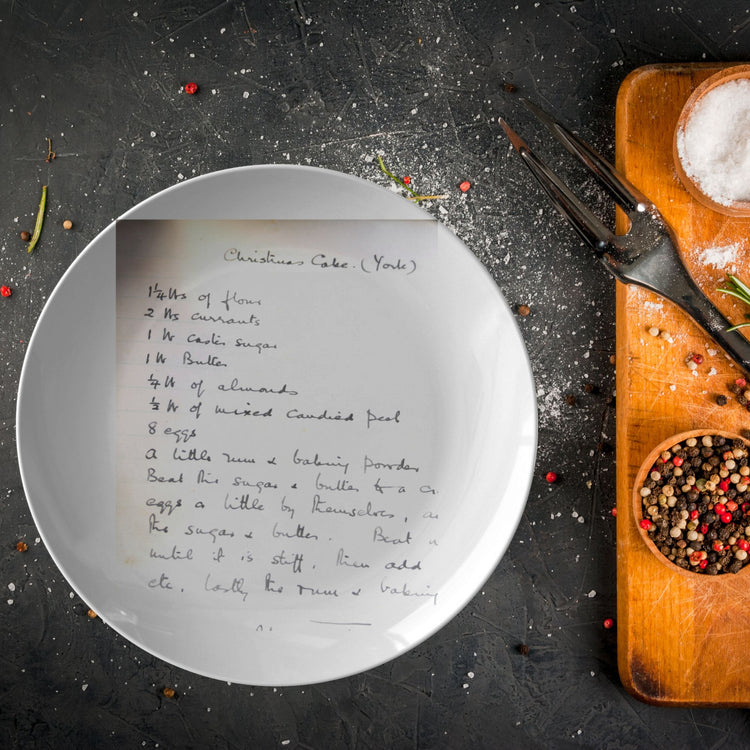 Christmas Cake. (York)
1¼ lbs of flour
2 lbs currants
1 lb castor sugar
1 lb Butter
¼ lb of almonds
½ lb of mixed candied peel
8 eggs
a little rum & baking powder
Beat the sugar & butter to a
eggs a little by themselves,
the sugar & butter. Beat
until it is stiff, then add
etc. Lastly the rum & baking